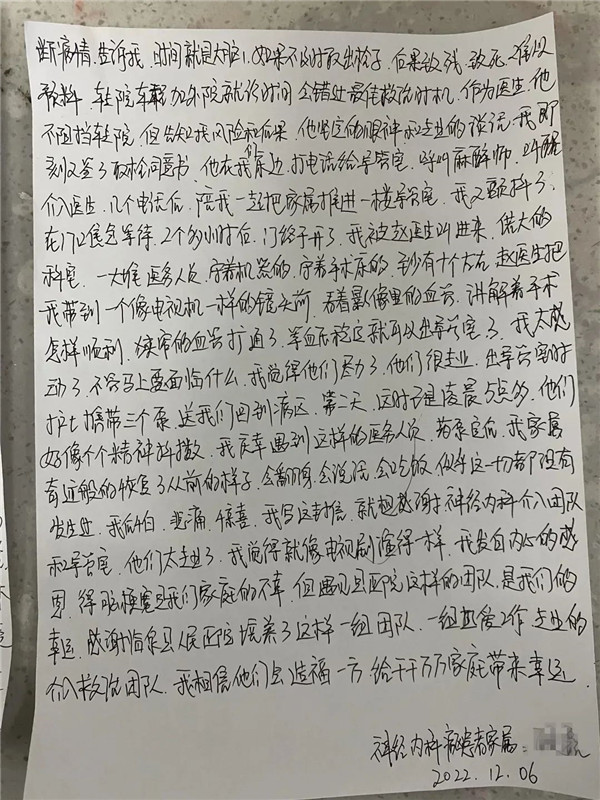 断病情,告诉我,时间就是大脑,如果不及时取出栓子,后果致残,致死,难以
预料,转院车程加外院就诊时间会错过最佳救治时机,作为医生,他
不阻挡转院,但告知我风险和后果,他坚定的眼神和专业的谈话,我即
刻又签了取栓同意书,他在我旁边,打电话给导管室,呼叫麻醉师,呼
介入医生,几个电话后,陪我一起把家属推进一楼导管室,我又颤抖了,
在门口焦急等待,2个多小时后,门终于开了,我被赵医生叫进来,偌大的
科室,一大堆医务人员,守着机器的,守着手术床的,至少有十个左右,赵医生把
我带到一个像电视机一样的镜头前,看着影像里的血管,讲解着手术
怎样顺利,狭窄的血管打通了,等血压稳定就可以出导管室了,我太感
动了,不管马上要面临什么,我觉得他们尽力了,他们很专业,出导管室时
护士携带三个泵,送我们回到病区,第二天,这时已是凌晨5点多,他们
好像个个精神抖擞,我庆幸遇到这样的医务人员,我家属
奇迹般的恢复了从前的样子,会翻身,会说话,会吃饭,似乎这一切都没有
发生过,我后怕,悲痛,惊喜,我写这封信,就想感谢神经内科介入团队
和导管室,他们太专业了,我觉得就像电视剧演得一样,我发自内心的感
恩,得脑梗塞是我们家庭的不幸,但遇见县医院这样的团队,是我们的
幸运,感谢临泉县人民医院培养了这样一组团队,一组热爱工作,专业的
介入救治团队,我相信他们会造福一方,给千千万万家庭带来幸运.
神经内科病患者家属:
2022.12.06